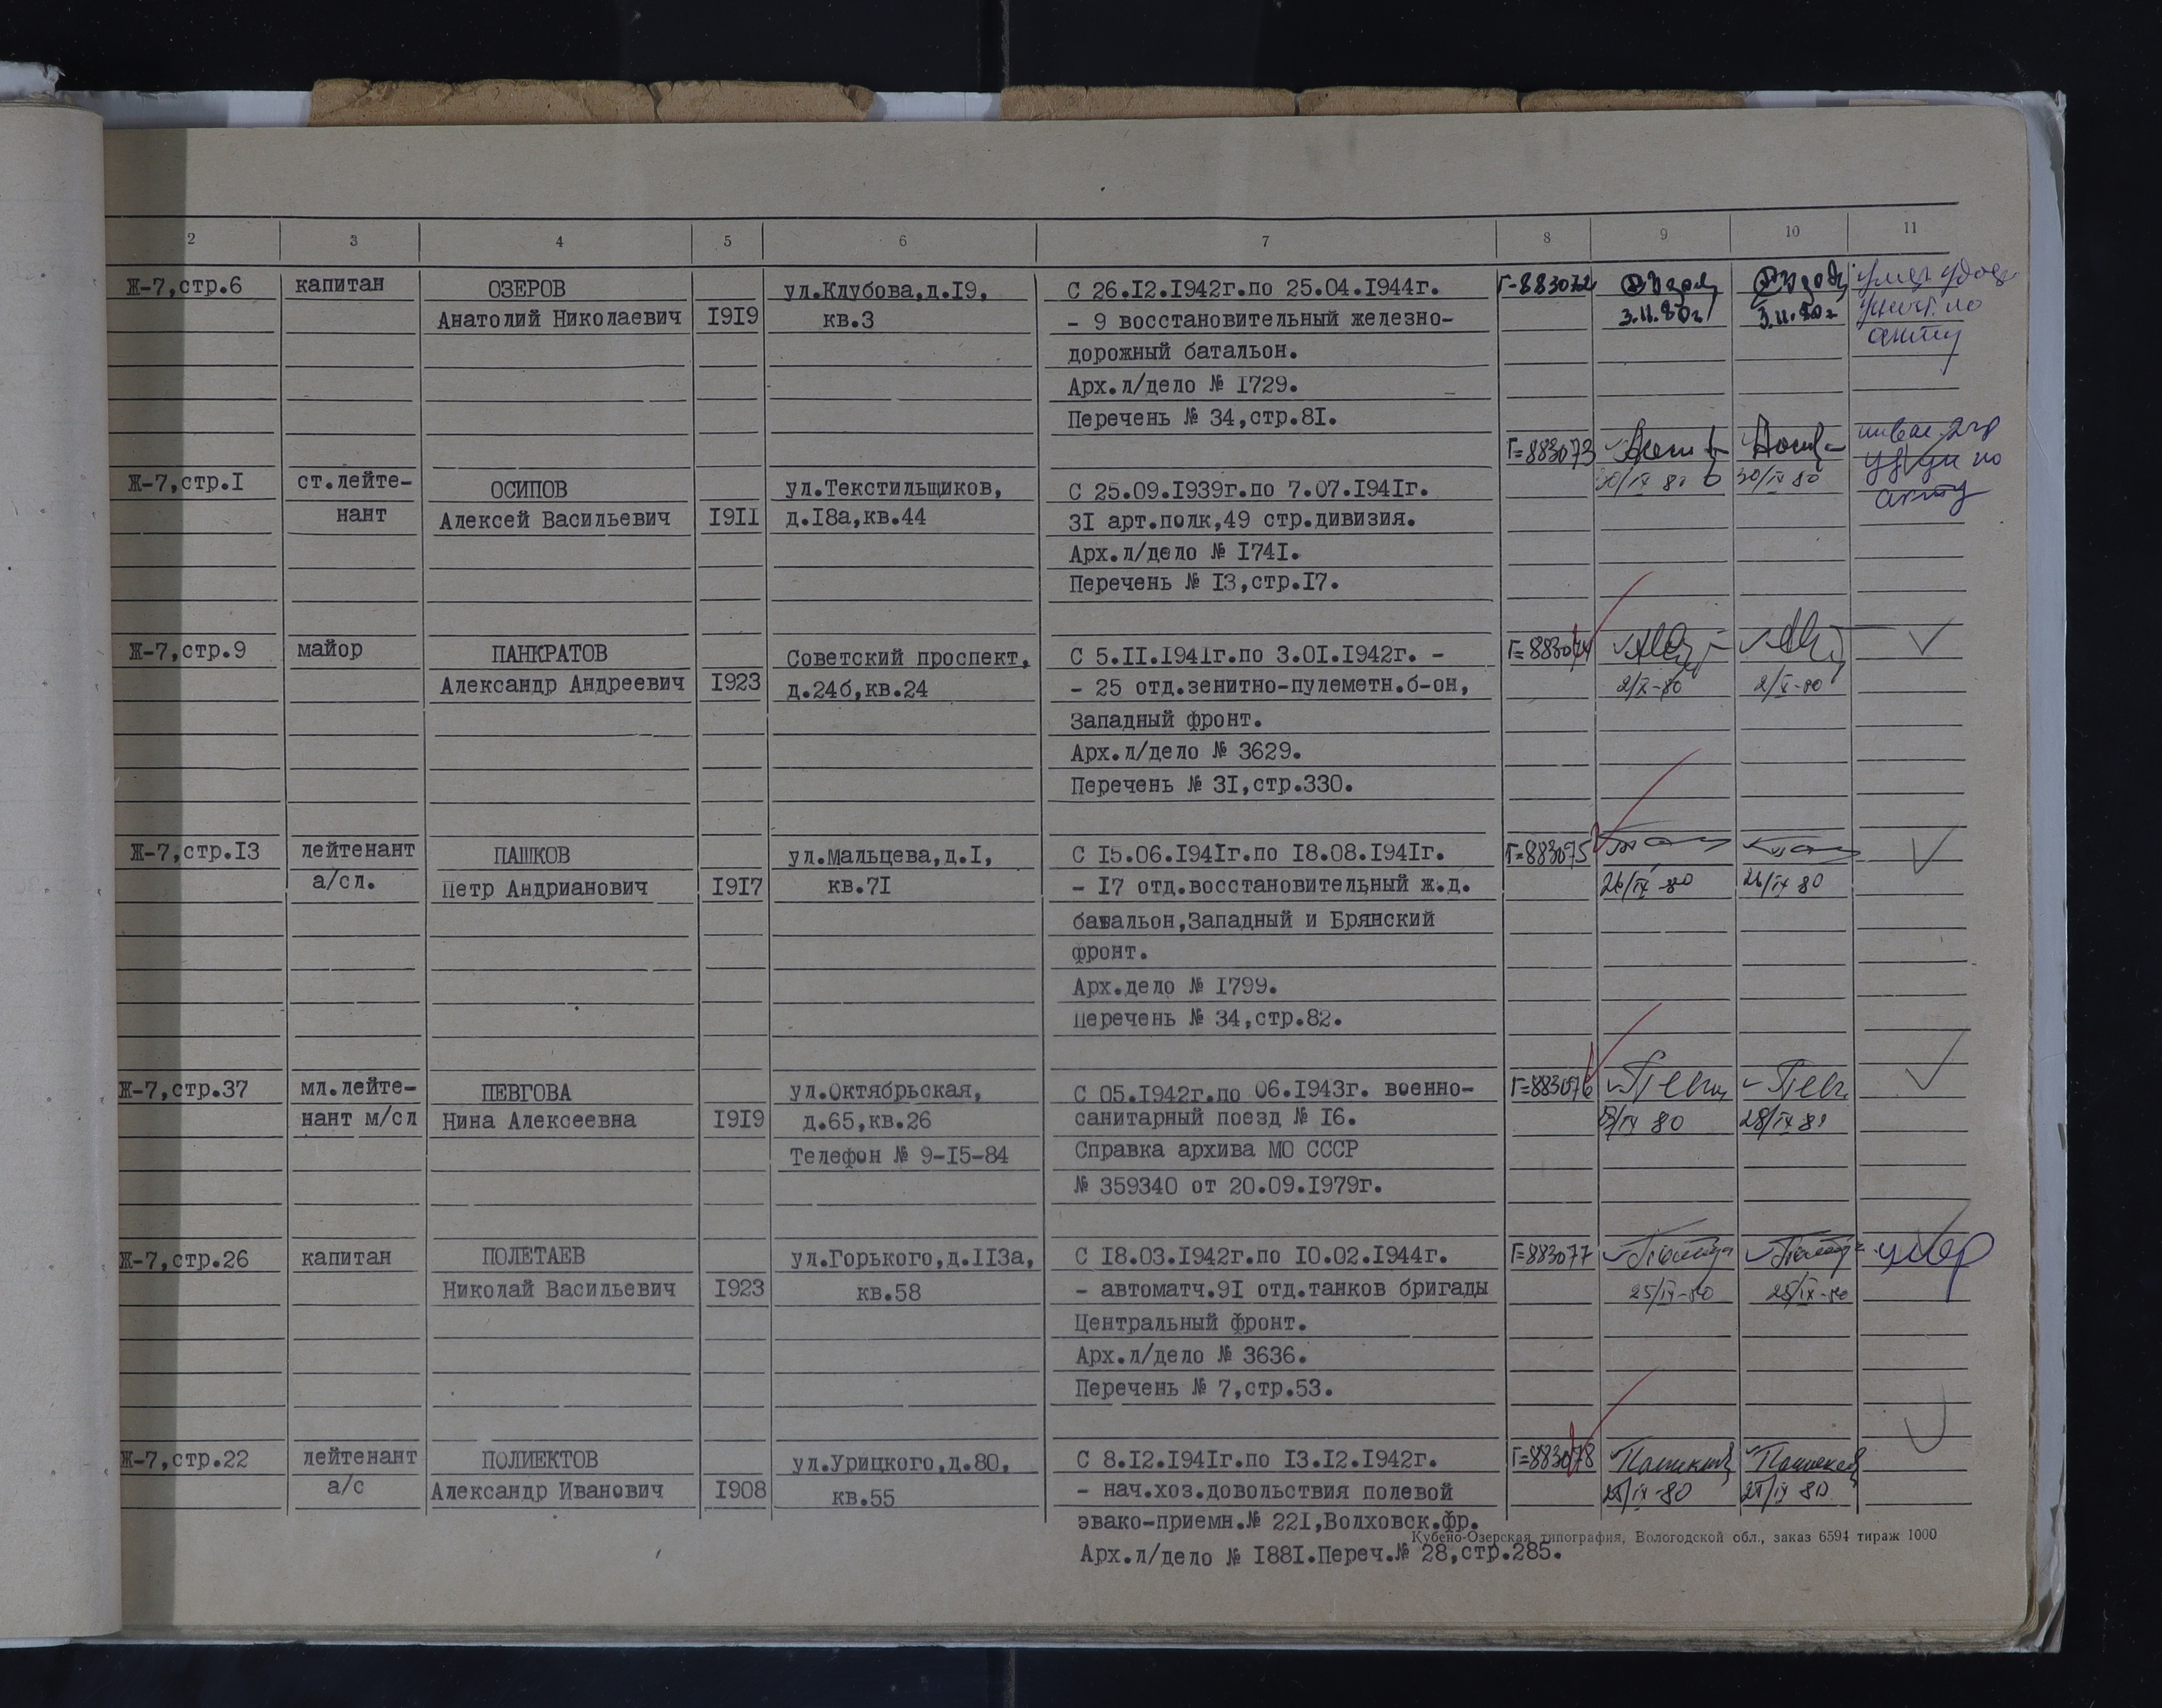 2 3 4 5 6 7 8 9 10 11
Ж-7,стр.6 капитан ОЗЕРОВ ул.Клубова,д.I9, С 26.I2.I942г.по 25.04.I944г. Г-883072
Анатолий Николаевич I9I9 кв.3 - 9 восстановительный железно- 3.II.80г 3.II.80г
дорожный батальон. акту
Арх.л/дело № I729.
Перечень № 34,стр.8I.
Г=883073
Ж-7,стр.I ст.лейте- ОСИПОВ ул.Текстильщиков, С 25.09.I939г.по 7.07.I94Iг. 30/IX 80 30/IX 80
нант Алексей Васильевич I9II д.I8а,кв.44 3I арт.полк,49 стр.дивизия. акту
Арх.л/дело № I74I.
Перечень № I3,стр.I7.
Ж-7,стр.9 майор ПАНКРАТОВ Советский проспект, С 5.II.I94Iг.по 3.0I.I942г. - Г=883074
Александр Андреевич I923 д.24б,кв.24 - 25 отд.зенитно-пулеметн.б-он, 2/X-80 2/X-80
Западный фронт.
Арх.л/дело № 3629.
Перечень № 3I,стр.330.
Ж-7,стр.I3 лейтенант ПАШКОВ ул.Мальцева,д.I, С I5.06.I94Iг.по I8.08.I94Iг. Г=883075
а/сл. Петр Андрианович I9I7 кв.7I - I7 отд.восстановительный ж.д. 26/IX 80 26/IX 80
батальон,Западный и Брянский
фронт.
Арх.дело № I799.
Перечень № 34,стр.82.
Ж-7,стр.37 мл.лейте- ПЕВГОВА ул.Октябрьская, С 05.I942г.по 06.I943г. военно- Г=883076
нант м/сл Нина Алексеевна I9I9 д.65,кв.26 санитарный поезд № I6. 28/IX 80
Телефон № 9-I5-84 Справка архива МО СССР
№ 359340 от 20.09.I979г.
Ж-7,стр.26 капитан ПОЛЕТАЕВ ул.Горького,д.II3а, С I8.03.I942г.по I0.02.I944г. Г=883077 умер
Николай Васильевич I923 кв.58 - автоматч.9I отд.танков бригады 25/IX-80 25/IX-80
Центральный фронт.
Арх.л/дело № 3636.
Перечень № 7,стр.53.
Ж-7,стр.22 лейтенант ПОЛИЕКТОВ ул.Урицкого,д.80, С 8.I2.I94Iг.по I3.I2.I942г. Г=883078
а/с Александр Иванович I908 кв.55 - нач.хоз.довольствия полевой 25/IX-80 25/IX 80
эвако-приемн.№ 22I,Волховск.фр.
Кубено-Озерская типография, Вологодской обл., заказ 6594 тираж 1000
Арх.л/дело № I88I.Переч.№ 28,стр.285.